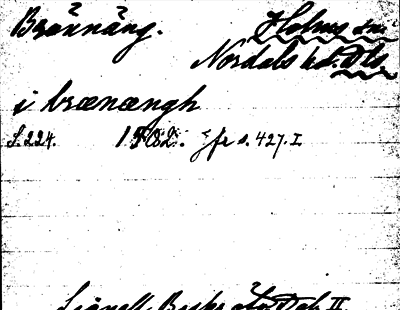 Brännäng. Holms sn.
Nordals hd. Dls.
i brænængh
s. 224. 1582. Jfr s. 427. I
Lignell, Beskr. öfv. Dal. II